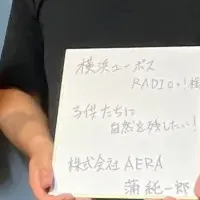 横浜ユーポス
RADIO+!様
子供たちに
自然を残したい!
株式会社AERA
蒲 純一郎